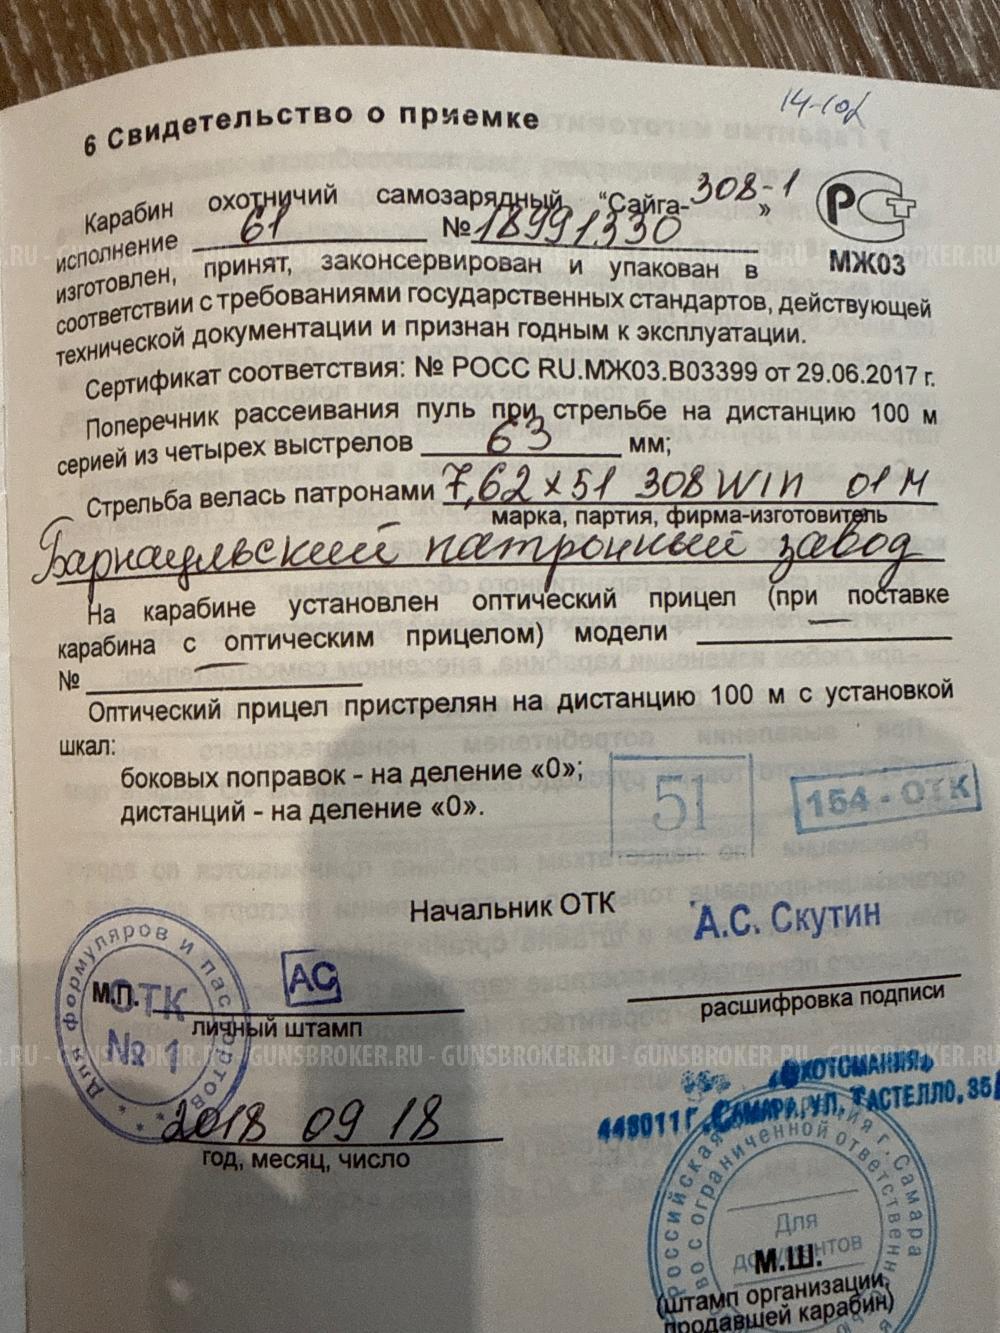 14-102
6 Свидетельство о приемке
Карабин охотничий самозарядный "Сайга-308-1"
исполнение 61 № 18991330
РСТ
МЖ03
изготовлен, принят, законсервирован и упакован в
соответствии с требованиями государственных стандартов, действующей
технической документации и признан годным к эксплуатации.
Сертификат соответствия: № РОСС RU.МЖ03.В03399 от 29.06.2017 г.
Поперечник рассеивания пуль при стрельбе на дистанцию 100 м
серией из четырех выстрелов 63 мм;
Стрельба велась патронами 7,62х51 308 WIN 01М
марка, партия, фирма-изготовитель
Барнаульский патронный завод
На карабине установлен оптический прицел (при поставке
карабина с оптическим прицелом) модели
№
Оптический прицел пристрелян на дистанцию 100 м с установкой
шкал:
боковых поправок - на деление «0»;
дистанций - на деление «0».
51
154-ОТК
Начальник ОТК
А.С. Скутин
АС
М.П.
личный штамп
расшифровка подписи
Для формуляров и паспортов
ОТК
№ 1
2018 09 18
год, месяц, число
«ОХОТОМАНИЯ»
443011 Г. САМАРА, УЛ. ГАСТЕЛЛО, 35
Российская
г. Самара
с ограниченной ответственн
Для
документов
М.Ш.
(штамп организации,
продавшей карабин)
GUNSBROKER.RU - GUNSBROKER.RU - GUNSBROKER.RU - GUNSBROKER.RU
GUNSBROKER.RU - GUNSBROKER.RU - GUNSBROKER.RU - GUNSBROKER.RU